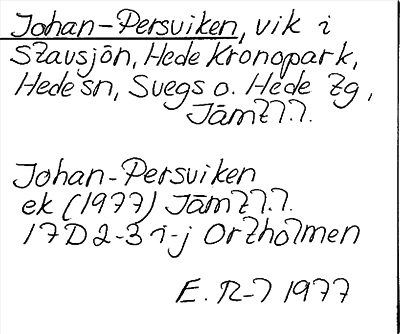 Johan-Persviken, vik i
Stavsjön, Hede Kronopark,
Hede sn, Svegs o. Hede tg,
Jämtl.
Johan-Persviken
ek (1977) Jämtl.
17D 2-3 i-j Ortholmen
E. R-l 1977